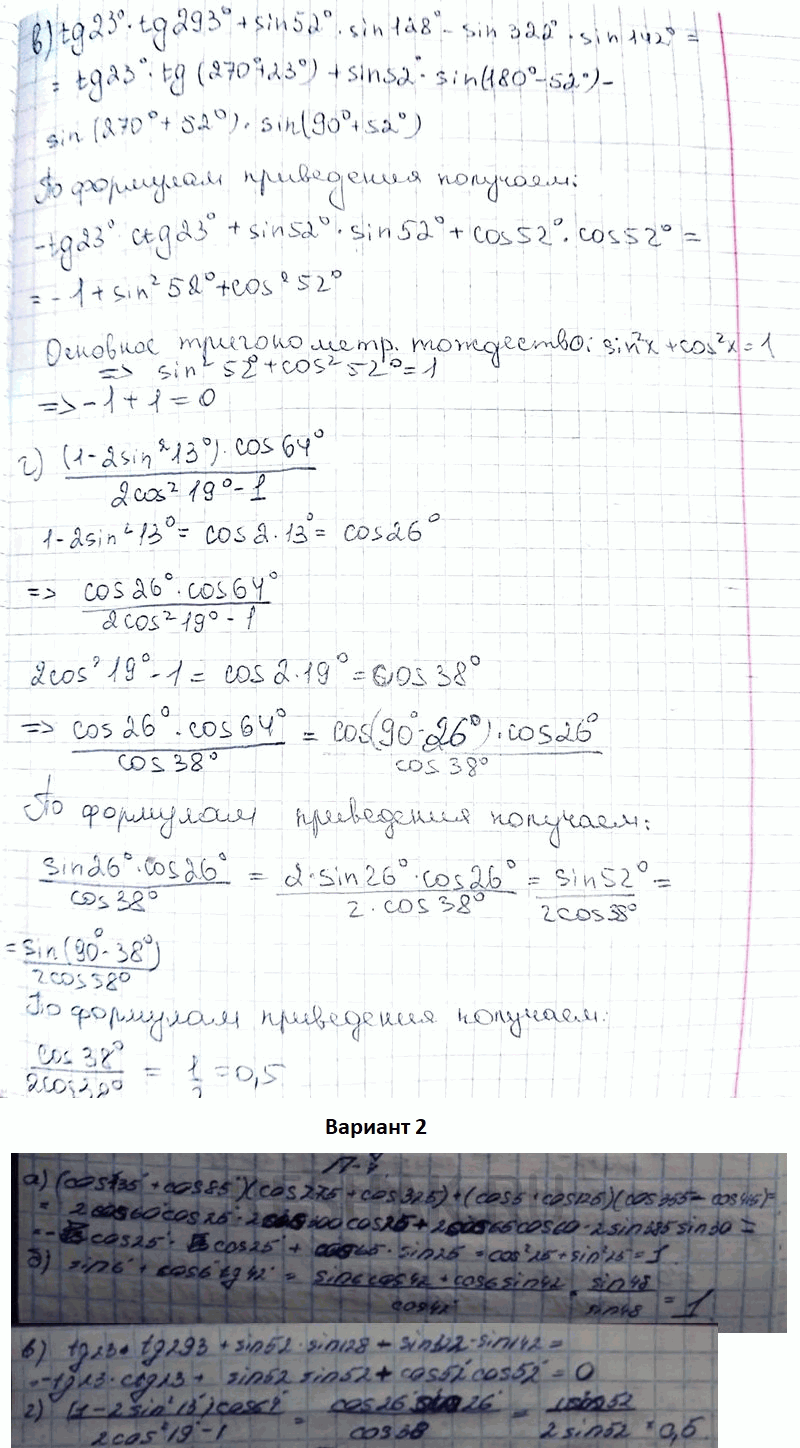 в) tg23°·tg293°+sin52°·sin128°-sin322°·sin142°=
= tg23°·tg(270°+23°)+sin52°·sin(180°-52°)-
sin(270°+52°)·sin(90°+52°)
По формулам приведения получаем:
-tg23° ctg23° + sin52°·sin52°+cos52°·cos52°=
= -1+sin²52°+cos²52°
Основное тригонометр. тождество: sin²x+cos²x=1
=> sin²52°+cos²52°=1
=>-1+1=0
г) (1-2sin²13°)·cos64°
2cos²19°-1
1-2sin²13°= cos2·13°= cos26°
=> cos26°·cos64°
2cos²19°-1
2cos²19°-1= cos2·19°=cos38°
=> cos26°·cos64° = cos(90°-26°)·cos26°
cos38° cos38°
По формулам приведения получаем:
sin26°·cos26° = 2·sin26°·cos26° = sin52° =
cos38° 2·cos38° 2cos38°
= sin(90°-38°)
2cos38°
По формулам приведения получаем:
cos38° = 1 =0,5
2cos38° 2
Вариант 2
а) (cos35+cos85)(cos275+cos325)+(cos5+cos125)(cos355-cos415)=
б) sin6+cos6 tg42 = sin6cos42+cos6sin42 = sin48 = 1
cos42 sin48
в) tg23·tg293+sin52·sin128-sin322·sin142=
=-tg23·ctg23+ sin52 sin52+cos52 cos52=0
г) (1-2sin²13)cos64 = cos26 sin26 = sin52 =0,5
2cos²19-1 cos38 2sin52